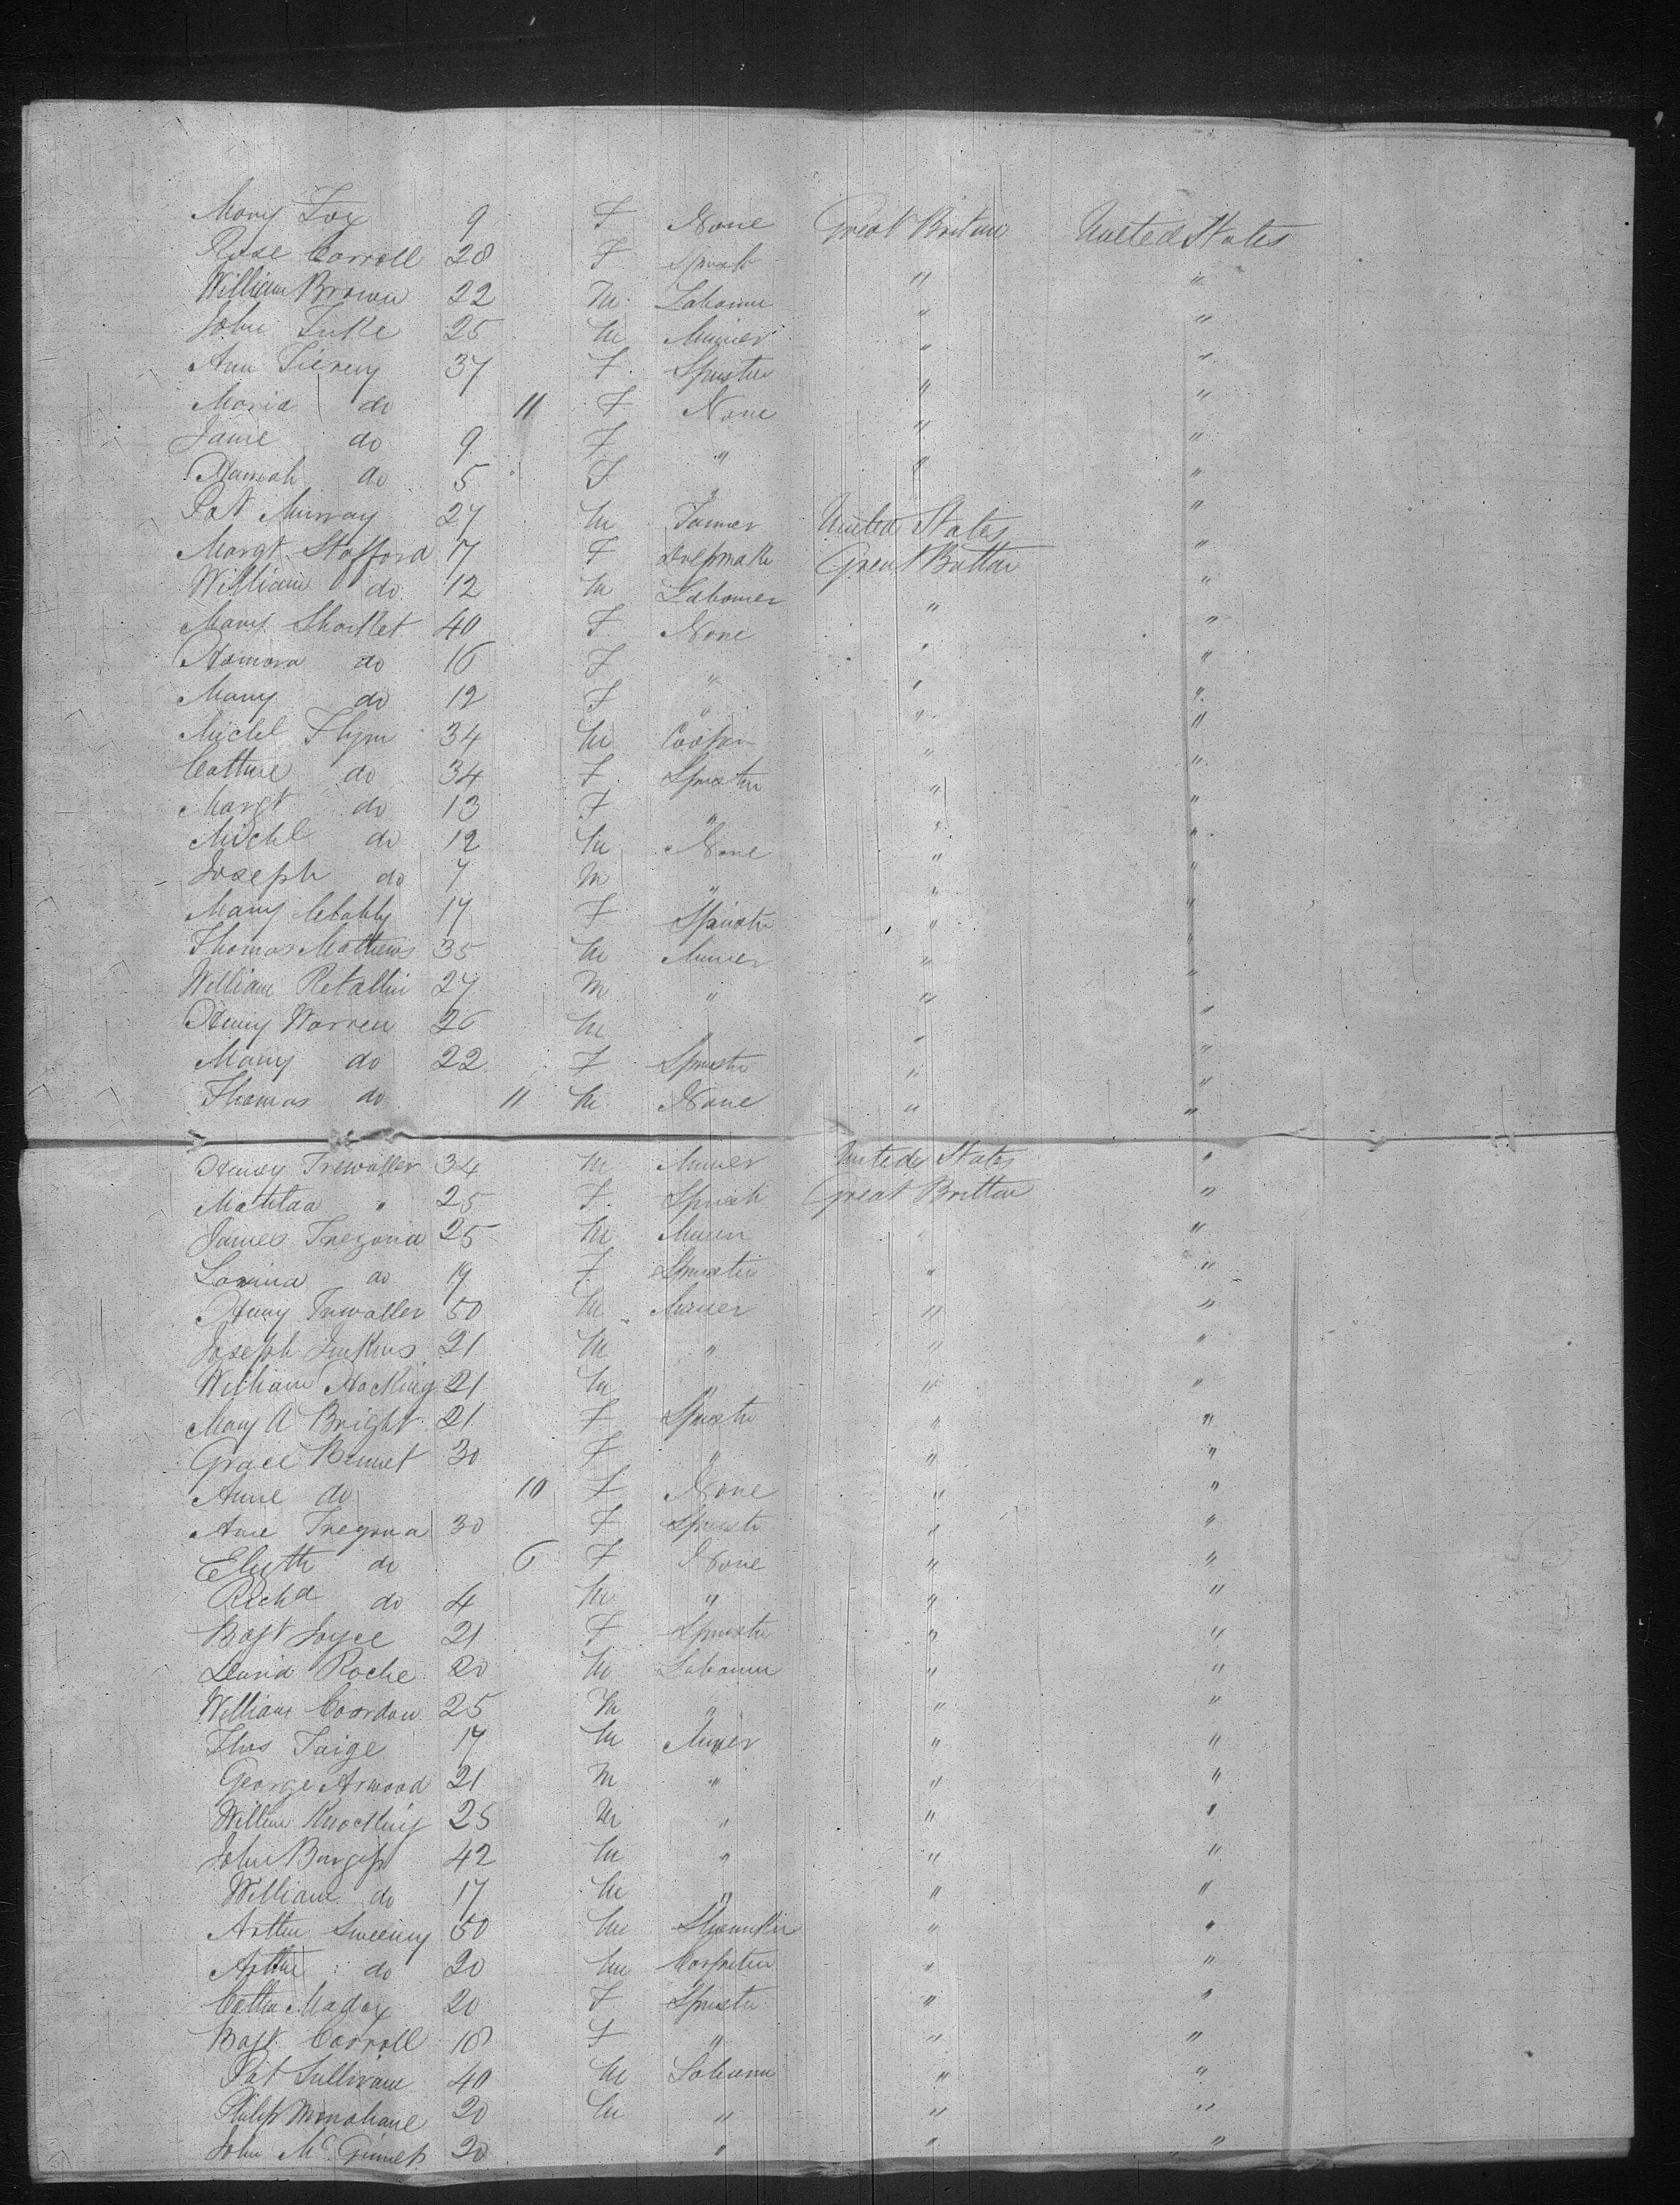 Mary Fox 9 F None Great Britain United States
Rose Carroll 28 F Spinst " "
William Brown 22 M Labourer " "
John Tuke 25 M Miner " "
Ann Tierny 37 F Spinster " "
Maria do 11 F None " "
Jane do 9 F " " "
Hannah do 5 F " " "
Pat Murray 27 M Farmer United States "
Margt Stafford 17 F Dressmak Great Brittan "
William do 12 M Labourer " "
Mary Shorket 40 F None " "
Honora do 16 F " " "
Mary do 12 F " " "
Michl Flynn 34 M " "
Cathne do 34 F Spinster " "
Margt do 13 F " " "
Michl do 12 M None " "
Joseph do 7 M " " "
Mary 17 F Spinster " "
Thomas Mathews 35 M Miner " "
William Retallin 27 M " " "
Henry Warren 26 M " " "
Mary do 22 F Spinster " "
Thomas do 11 M None " "
Henry Trewaller 34 M Miner United States "
Matilda " 25 F Spinst Great Brittan "
James Tregona 25 M Miner " "
Lavina do 19 F Spinster " "
Henry Trewaller 50 M Miner " "
Joseph Jenkins 21 M " " "
William Hocking 21 M " " "
Mary A Bright 21 F Spinster " "
Grace Bennet 30 F " " "
Anne do 10 F None " "
Ane Tregona 30 F Spinster " "
Elizth do 6 F None " "
Richd do 4 M " " "
Bgt Joyce 21 F Spinster " "
David Roche 20 M Labourer " "
William Coordon 25 M " " "
Thos Taige 17 M Miner " "
George Arwood 21 M " " "
William 25 M " " "
John Burgess 42 M " " "
William do 17 M " " "
Arthur Sweeney 50 M " "
Arthur do 20 M Carpenter " "
Cathn Madox 20 F Spinster " "
Bgt Carroll 18 F " " "
Pat Sullivan 40 M Labourer " "
Philip Monahane 20 M " " "
John McGinness 20 " " "